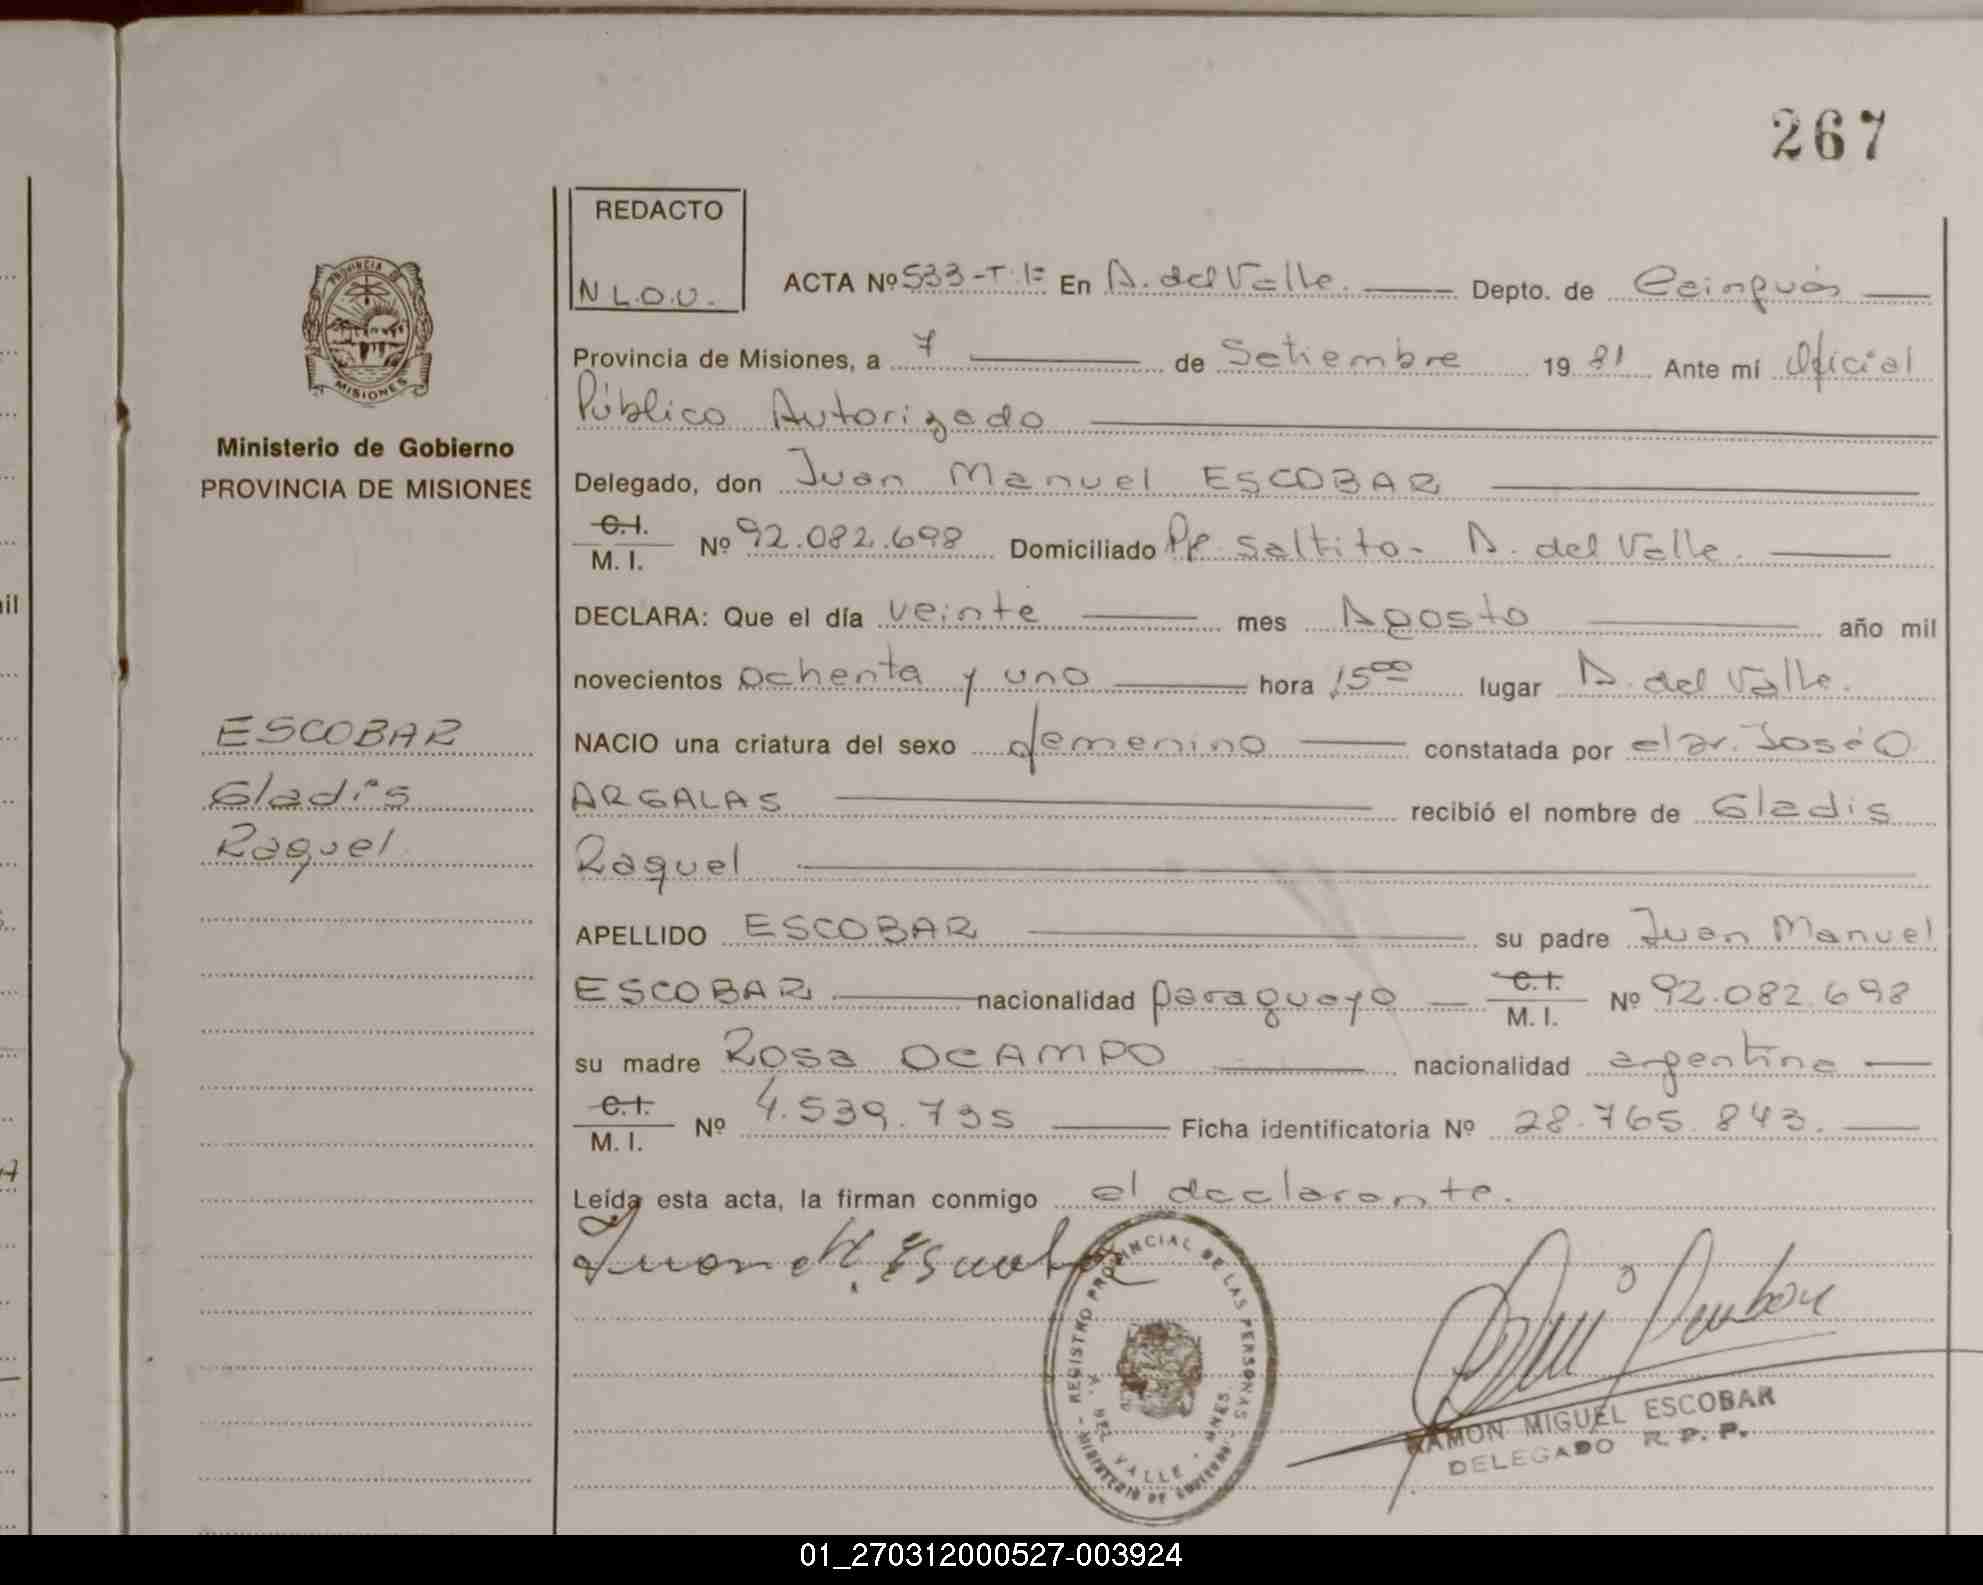 267
REDACTO
N L.O.U.
PROVINCIA DE
MISIONES
Ministerio de Gobierno
PROVINCIA DE MISIONES
ESCOBAR
Gladis
Raquel
ACTA Nº 533-T.1= En A. del Valle. Depto. de Cainguás
Provincia de Misiones, a 7 de Setiembre 19 81 Ante mí Oficial
Público Autorizado
Delegado, don Juan Manuel ESCOBAR
C.I.
M. I. Nº 92.082.698 Domiciliado Pje. Saltito - A. del Valle.
DECLARA: Que el día veinte mes Agosto año mil
novecientos ochenta y uno hora 15 00 lugar A. del Valle.
NACIO una criatura del sexo femenino constatada por el Dr. José O.
ARGALAS recibió el nombre de Gladis
Raquel
APELLIDO ESCOBAR su padre Juan Manuel
ESCOBAR nacionalidad paraguayo C.I. M. I. Nº 92.082.698
su madre Rosa OCAMPO nacionalidad argentina
C.I.
M. I. Nº 4.539.735 Ficha identificatoria Nº 28.765.843.
Leída esta acta, la firman conmigo el declarante.
Juan M. Escobar
REGISTRO PROVINCIAL DE LAS PERSONAS
A. DEL VALLE - MNES.
MINISTERIO DE GOBIERNO
RAMON MIGUEL ESCOBAR
DELEGADO R. P. P.
01_270312000527-003924